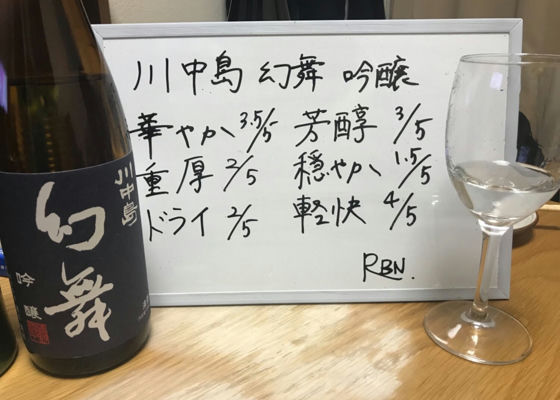 川中島 幻舞 吟醸
華やか 3.5/5 芳醇 3/5
重厚 2/5 穏やか 1.5/5
ドライ 2/5 軽快 4/5
RBN.
川中島
幻舞
吟醸